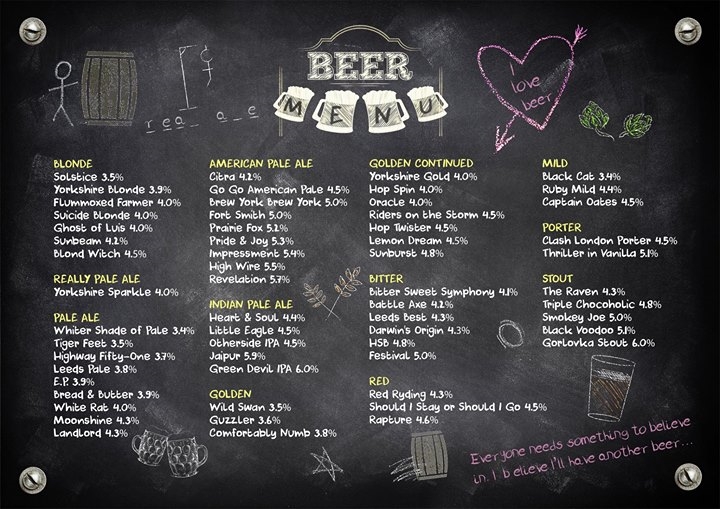 BEER
MENU
I
love
beer
r e a _ _ a _ e
BLONDE
Solstice 3.5%
Yorkshire Blonde 3.9%
Flummoxed Farmer 4.0%
Suicide Blonde 4.0%
Ghost of Luis 4.0%
Sunbeam 4.2%
Blond Witch 4.5%
REALLY PALE ALE
Yorkshire Sparkle 4.0%
PALE ALE
Whiter Shade of Pale 3.4%
Tiger Feet 3.5%
Highway Fifty-One 3.7%
Leeds Pale 3.8%
E.P. 3.9%
Bread & Butter 3.9%
White Rat 4.0%
Moonshine 4.3%
Landlord 4.3%
AMERICAN PALE ALE
Citra 4.2%
Go Go American Pale 4.5%
Brew York Brew York 5.0%
Fort Smith 5.0%
Prairie Fox 5.2%
Pride & Joy 5.3%
Impressment 5.4%
High Wire 5.5%
Revelation 5.7%
INDIAN PALE ALE
Heart & Soul 4.4%
Little Eagle 4.5%
Otherside IPA 4.5%
Jaipur 5.9%
Green Devil IPA 6.0%
GOLDEN
Wild Swan 3.5%
Guzzler 3.6%
Comfortably Numb 3.8%
GOLDEN CONTINUED
Yorkshire Gold 4.0%
Hop Spin 4.0%
Oracle 4.0%
Riders on the Storm 4.5%
Hop Twister 4.5%
Lemon Dream 4.5%
Sunburst 4.8%
BITTER
Bitter Sweet Symphony 4.1%
Battle Axe 4.2%
Leeds Best 4.3%
Darwin's Origin 4.3%
HSB 4.8%
Festival 5.0%
RED
Red Ryding 4.3%
Should I Stay or Should I Go 4.5%
Rapture 4.6%
MILD
Black Cat 3.4%
Ruby Mild 4.4%
Captain Oates 4.5%
PORTER
Clash London Porter 4.5%
Thriller in Vanilla 5.1%
STOUT
The Raven 4.3%
Triple Chocoholic 4.8%
Smokey Joe 5.0%
Black Voodoo 5.1%
Gorlovka Stout 6.0%
Everyone needs something to believe
in. I believe I'll have another beer...